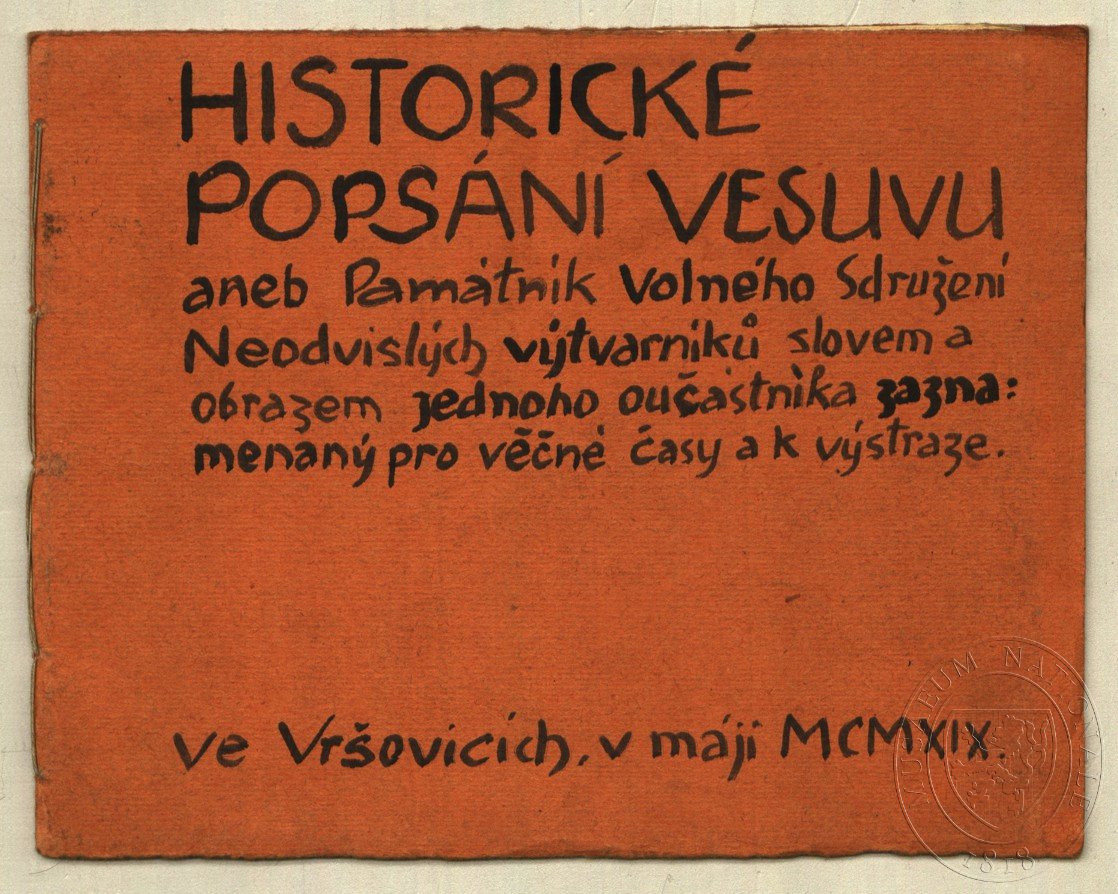 HISTORICKÉ
POPSÁNÍ VESUVU
aneb Památník Volného Sdružení
Neodvislých výtvarníků slovem a
obrazem jednoho oučastníka zazna:
menaný pro věčné časy a k výstraze.
ve Vršovicích, v máji MCMXIX.
MUSEUM NATIONALE
1818